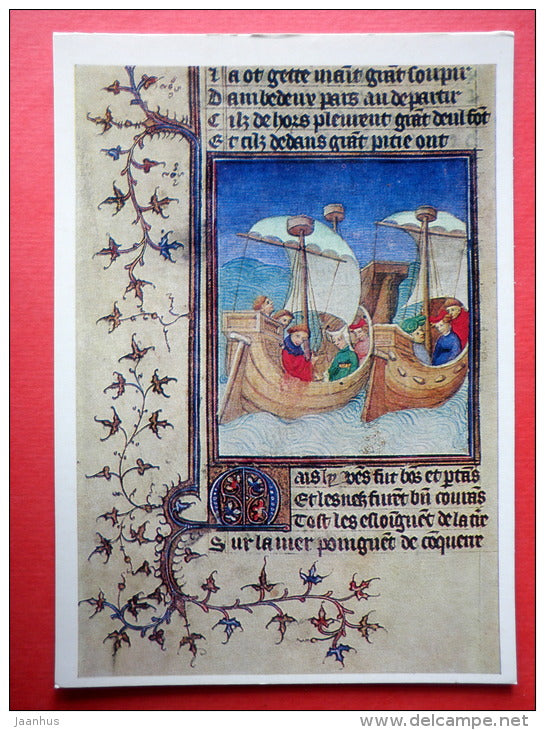 La ot gette maīt grāt souprr
Dambedeux pars au departir
Cilz de hors pleurent grāt deul fōt
Et cilz dedans grāt pitie ont
Mais ly vēs fut bōs et
Et les nefz furēt bn̄
Tost les esloiguēt de la tīr
Sur la mer poīguēt de
Jaanhus
www.delcampe.net